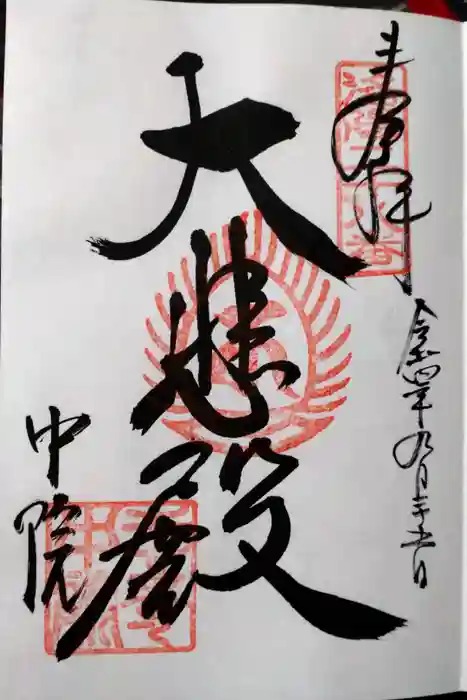 奉拝
令和四年九月二十五日
大悲殿
中院